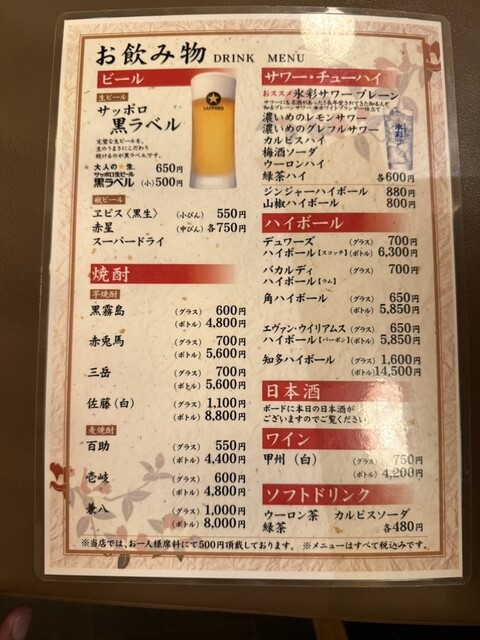 お飲み物 DRINK MENU
ビール
生ビール
サッポロ
黒ラベル
完璧な生ビールを。
生のうまさにこだわり
焼けるのが黒ラベルです。
大人の★生。
サッポロ生ビール
黒ラベル
650円
(小)500円
SAPPORO
瓶ビール
ヱビス〈黒生〉 (小びん) 550円
赤星 (中びん) 各750円
スーパードライ
焼酎
芋焼酎
黒霧島 (グラス) 600円
(ボトル) 4,800円
赤兎馬 (グラス) 700円
(ボトル) 5,600円
三岳 (グラス) 700円
(ボトル) 5,600円
佐藤(白) (グラス) 1,100円
(ボトル) 8,800円
麦焼酎
百助 (グラス) 550円
(ボトル) 4,400円
壱岐 (グラス) 600円
(ボトル) 4,800円
兼八 (グラス) 1,000円
(ボトル) 8,000円
サワー・チューハイ
おススメ 氷彩サワー プレーン
濃いめのレモンサワー
濃いめのグレフルサワー
カルピスハイ
梅酒ソーダ
ウーロンハイ
緑茶ハイ 各600円
氷彩
ジンジャーハイボール 880円
山椒ハイボール 800円
ハイボール
デュワーズ (グラス) 700円
ハイボール【スコッチ】 (ボトル) 6,300円
バカルディ (グラス) 700円
ハイボール【ラム】
角ハイボール (グラス) 650円
(ボトル) 5,850円
エヴァン・ウイリアムス (グラス) 650円
ハイボール【バーボン】 (ボトル) 5,850円
知多ハイボール (グラス) 1,600円
(ボトル) 14,500円
日本酒
ボードに本日の日本酒が
ございますのでご覧ください
ワイン
甲州(白) (グラス) 750円
(ボトル) 4,200円
ソフトドリンク
ウーロン茶 カルピスソーダ
緑茶 各480円
※当店では、お一人様席料にて500円頂戴しております。 ※メニューはすべて税込みです。